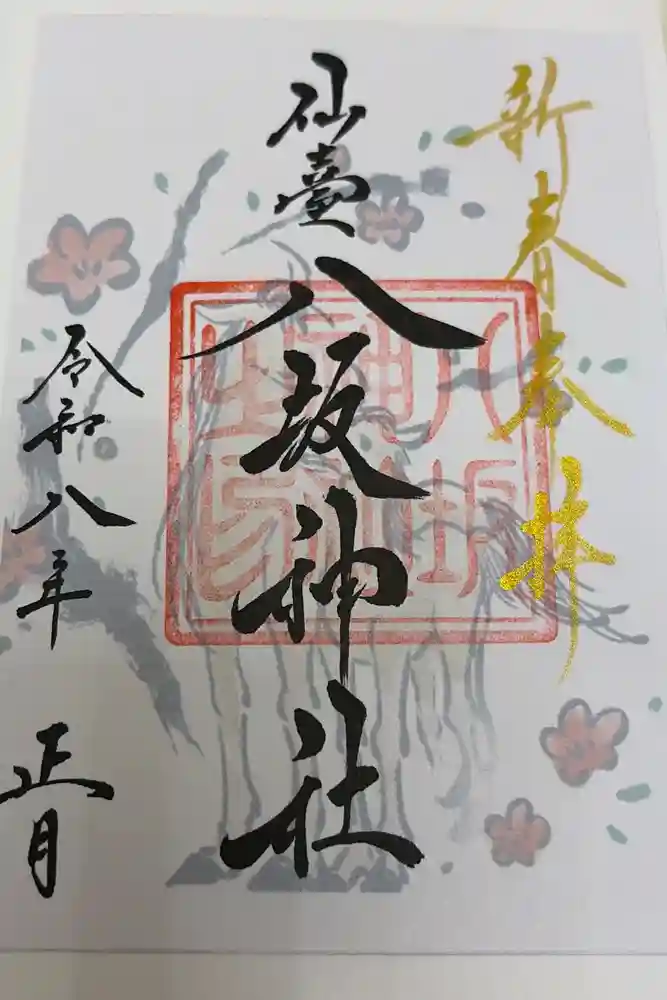 新春奉拝
仙臺八坂神社
令和八年 正月